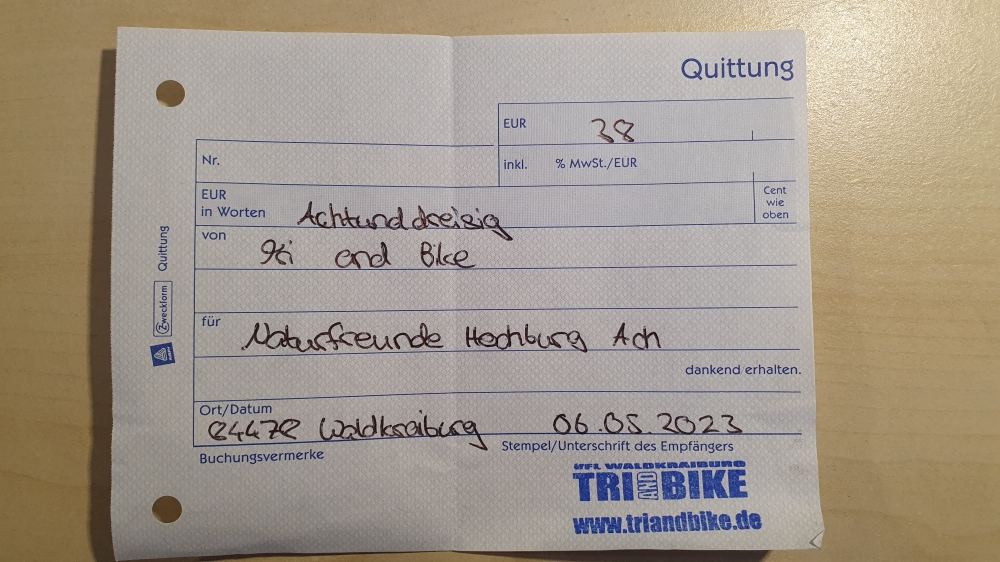 Quittung
EUR 38
Nr.
inkl. % MwSt./EUR
EUR
in Worten Achtunddreisig
Cent
wie
oben
von Tri and Bike
für Naturfreunde Hechburg Ach
dankend erhalten.
Ort/Datum
84478 Waldkraiburg 06.05.2023
Buchungsvermerke
Stempel/Unterschrift des Empfängers
VFL WALDKRAIBURG
TRI AND BIKE
www.triandbike.de
Zweckform Quittung